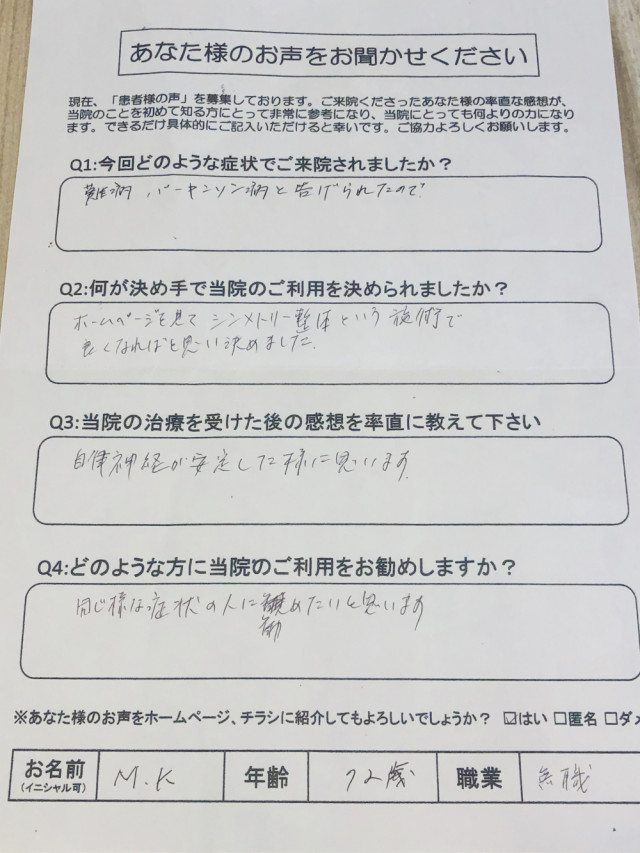 あなた様のお声をお聞かせください
現在、「患者様の声」を募集しております。ご来院くださったあなた様の率直な感想が、
当院のことを初めて知る方にとって非常に参考になり、当院にとっても何よりの力になり
ます。できるだけ具体的にご記入いただけると幸いです。ご協力よろしくお願いします。
Q1:今回どのような症状でご来院されましたか？
難病 パーキンソン病と告げられたので
Q2:何が決め手で当院のご利用を決められましたか？
ホームページを見て シンメトリー整体という 施術で
良くなればと思い決めました。
Q3:当院の治療を受けた後の感想を率直に教えて下さい
自律神経が安定した様に思います
Q4:どのような方に当院のご利用をお勧めしますか？
同じ様な症状の人に めたいと思います
勧
※あなた様のお声をホームページ、チラシに紹介してもよろしいでしょうか？ ☑はい □匿名 □ダメ
お名前 M.K 年齢 72歳 職業 無職
(イニシャル可)